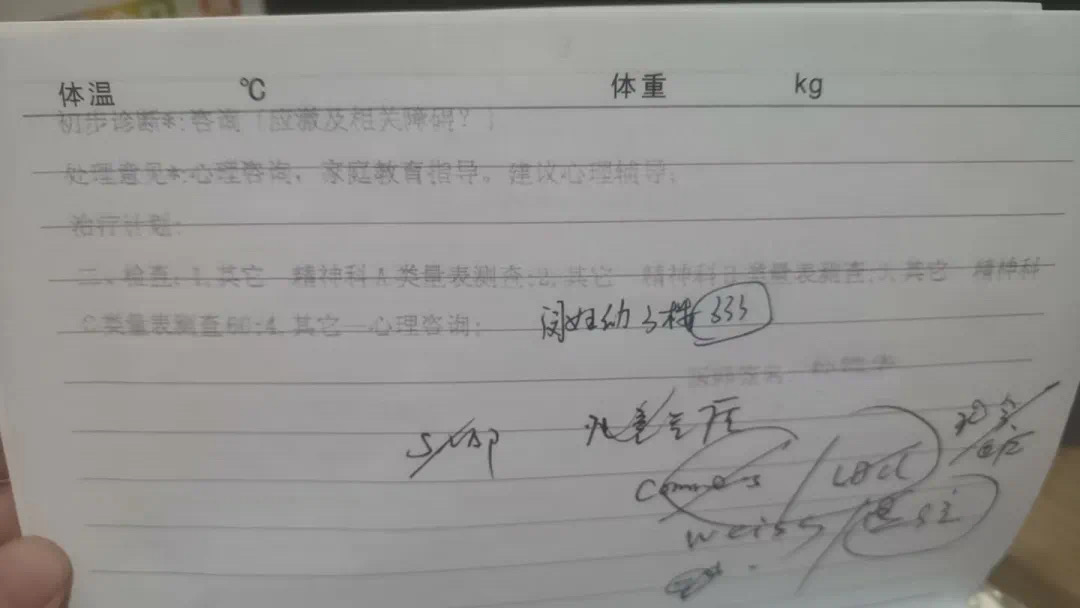 体温 ℃ 体重 kg
初步诊断*:咨询（应激及相关障碍?）
处理意见*:心理咨询，家庭教育指导。建议心理辅导;
治疗计划:
二、检查:1.其它 精神科A类量表测查;2.其它 精神科B类量表测查;3.其它 精神科
C类量表测查60;4.其它 心理咨询;
闵妇幼3楼 333
医师签名
SNAP 儿童
Conners
Weiss